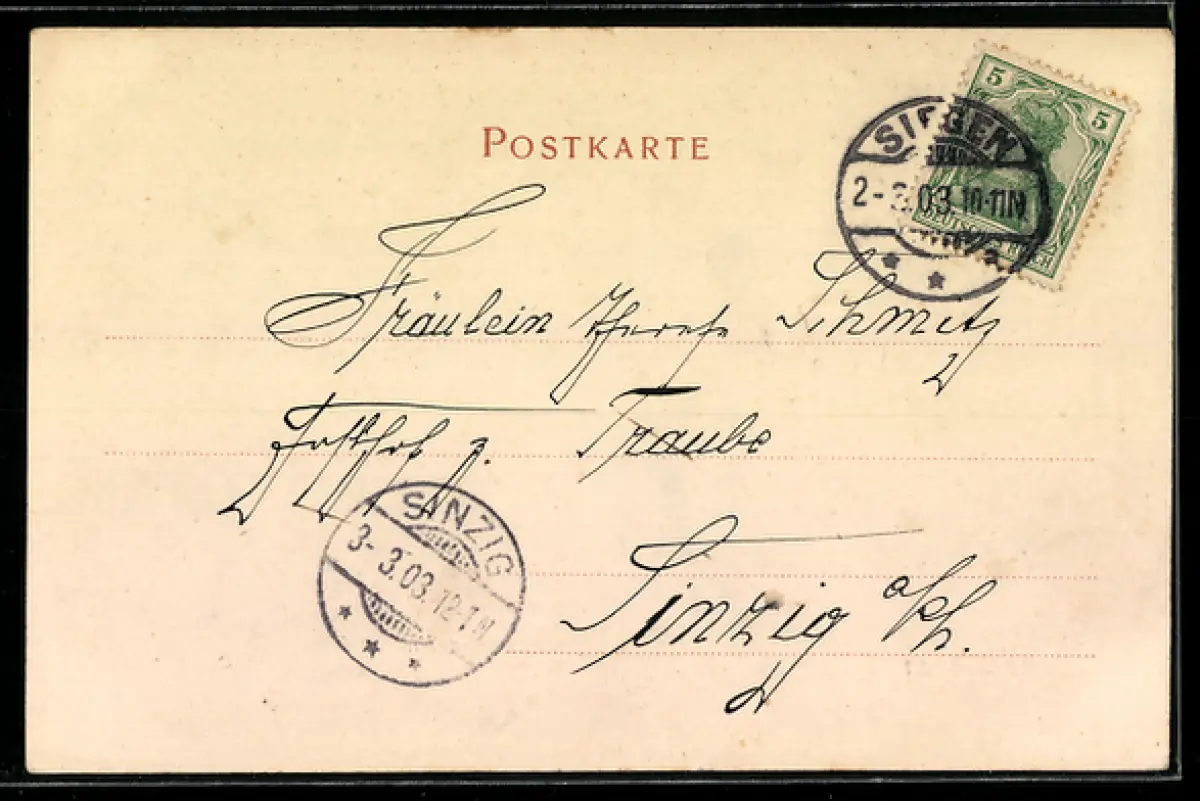 POSTKARTE
5 5
DEUTSCHES REICH
SIEGEN
2-3.03.10-11N.
a
Fräulein Therese Schmitz
Gasthof z. Traube
SINZIG
3-3.03.12-1N
Sinzig a/Rh.